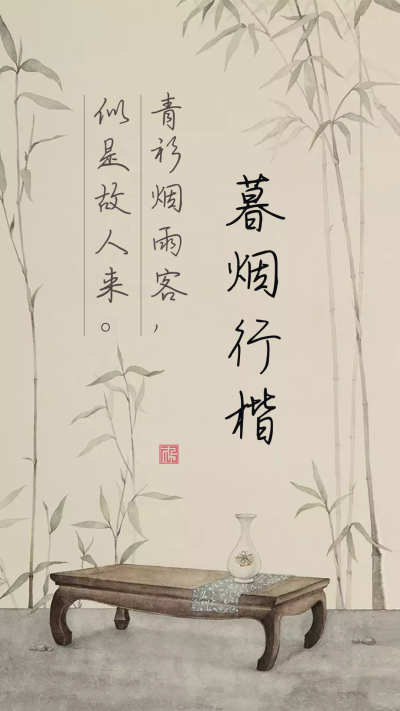 暮烟行楷
青衫烟雨客，
似是故人来。